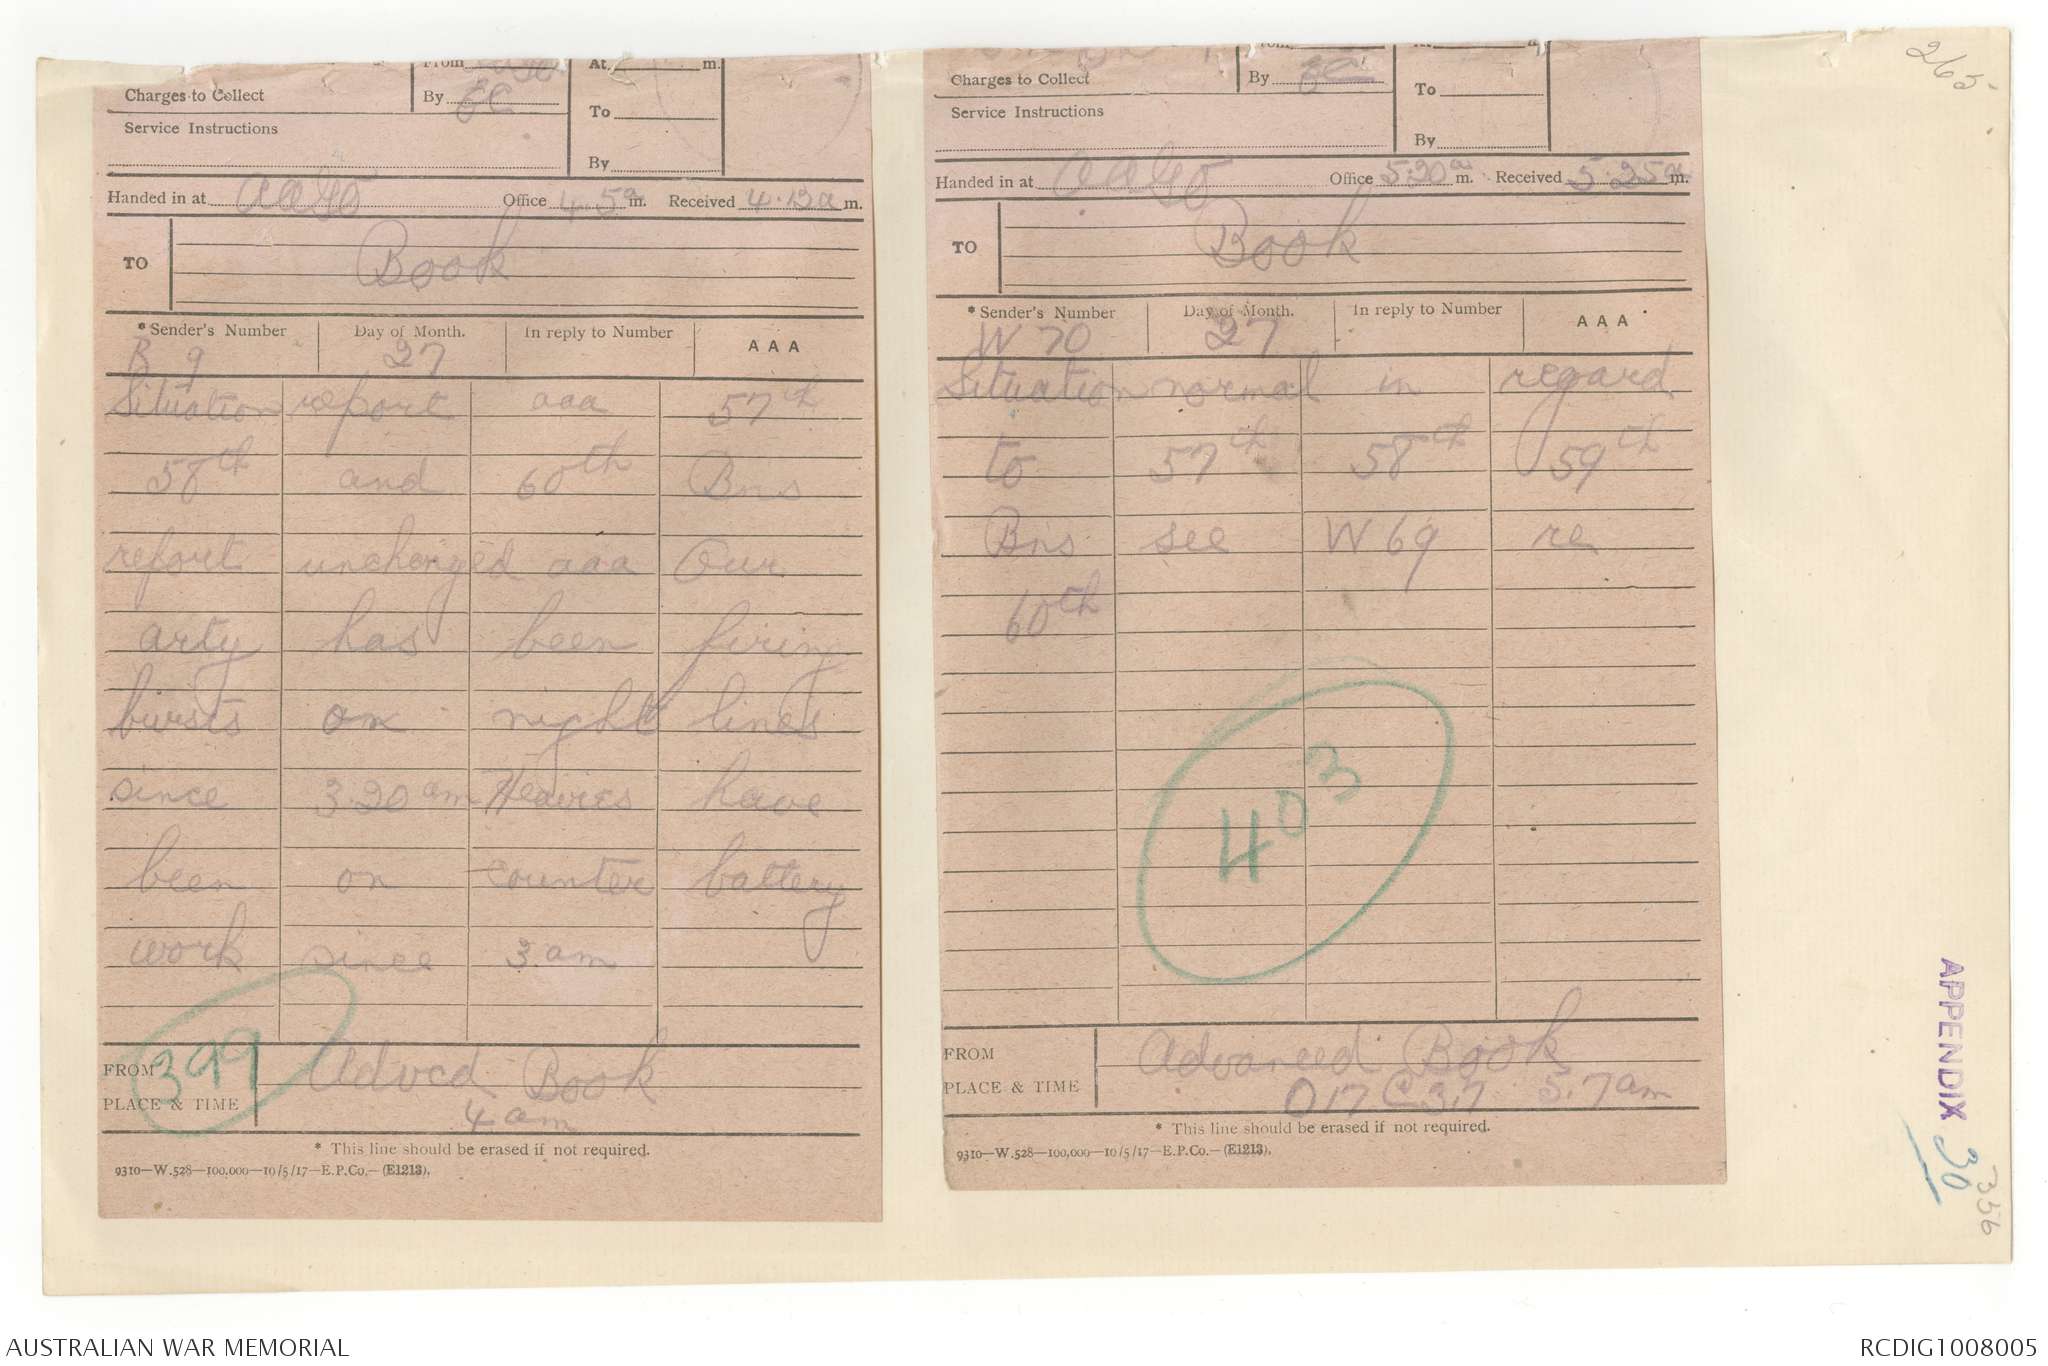 265.
From
At m.
Charges to Collect
By EC
To
Service Instructions
By
Handed in at Office 4.5a m. Received 4.12a m.
TO
Book
* Sender's Number
Day of Month.
In reply to Number
AAA
B 9
27
Situation report aaa 57th
58th and 60th Bns
report unchanged aaa Our
arty has been firing
bursts on night lines
since 3.20 am Heavies have
been on counter battery
work since 3 am
399
FROM
PLACE & TIME
Advcd Book
4 am
* This line should be erased if not required.
9310—W.528—100,000—10/5/17—E.P.Co.—(E1213).
Charges to Collect
By EC
To
Service Instructions
By
Handed in at Office 5.20a m. Received 5.25a m.
TO
Book
* Sender's Number
Day of Month.
In reply to Number
AAA
W 70
27
Situation normal in regard
to 57th 58th 59th
Bns see W 69 re
60th
403
FROM
PLACE & TIME
Advanced Book
O17 C 3.7 5.7 am
* This line should be erased if not required.
9310—W.528—100,000—10/5/17—E.P.Co.—(E1213).
APPENDIX 30
356
AUSTRALIAN WAR MEMORIAL
RCDIG1008005